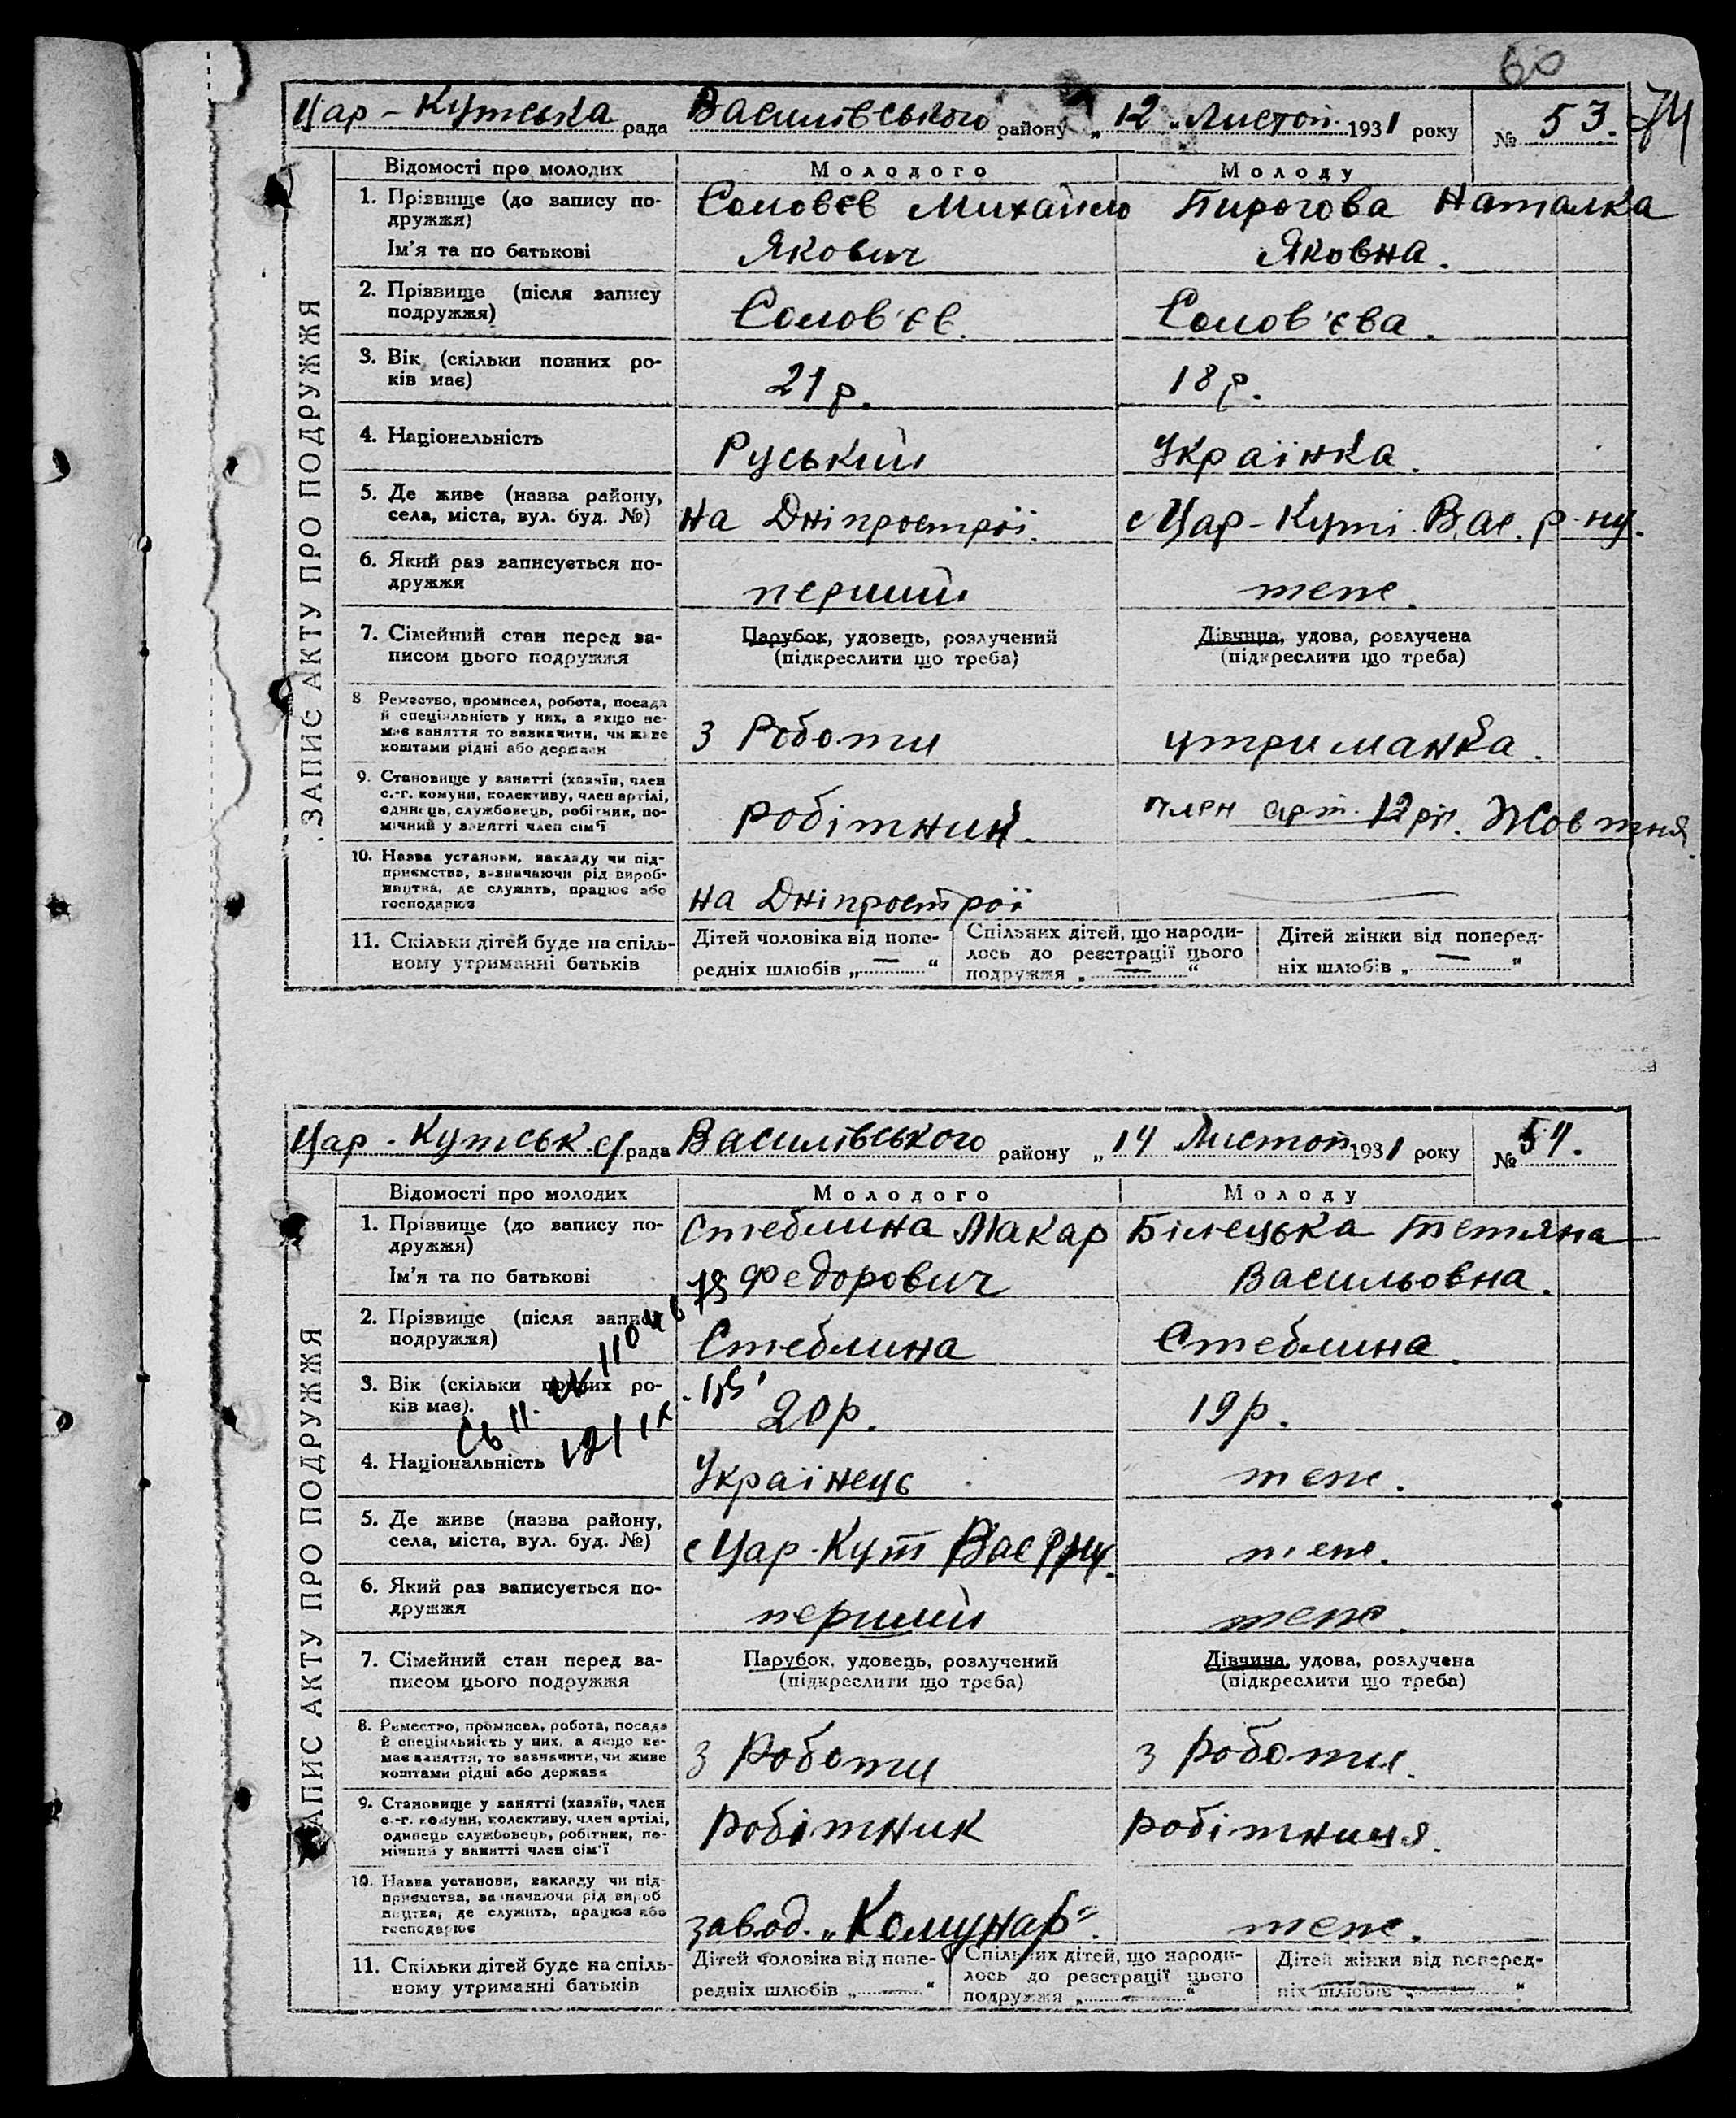 60
74
Цар-Кутська рада Василівського району „12“ Листоп. 1931 року № 53.
ЗАПИС АКТУ ПРО ПОДРУЖЖЯ
Відомості про молодих Молодого Молоду
1. Прізвище (до запису по-
дружжя)
Соловєв Михайло Пирогова Наталка
Ім'я та по батькові Якович Яковна.
2. Прізвище (після запису
подружжя)
Солов'єв. Солов'єва.
3. Вік (скільки повних ро-
ків має)
21 р. 18 р.
4. Національність Руський Українка.
5. Де живе (назва району,
села, міста, вул. буд. №)
на Дніпрострої. с Цар-Куті Вас. р-ну.
6. Який раз записується по-
дружжя
перший теже.
7. Сімейний стан перед за-
писом цього подружжя
Парубок, удовець, розлучений
(підкреслити що треба)
Дівчина, удова, розлучена
(підкреслити що треба)
8 Ремество, промисел, робота, посада
й спеціяльність у них, а якщо не-
має заняття то зазначити, чи живе
коштами рідні або держави
З Роботи утриманка.
9. Становище у занятті (хазяїн, член
с.-г. комуни, колективу, член артілі,
одинець, службовець, робітник, по-
мічний у занятті член сім'ї
робітник. член арт. 12 річ. Жовтня.
10. Назва установи, закладу чи під-
приємства, зазначаючи рід вироб-
ництва, де служить, працює або
господарює
на Дніпрострої —
11. Скільки дітей буде на спіль-
ному утриманні батьків
Дітей чоловіка від попе-
редніх шлюбів „—“
Спільних дітей, що народи-
лось до реєстрації цього
подружжя „—“
Дітей жінки від поперед-
ніх шлюбів „—“
Цар-Кутськ. с/рада Василівського району „14 Листоп 1931 року № 54.
ЗАПИС АКТУ ПРО ПОДРУЖЖЯ
Відомості про молодих Молодого Молоду
1. Прізвище (до запису по-
дружжя)
Стеблина Макар Білецька Тетяна
Ім'я та по батькові Федорович Васильовна.
2. Прізвище (після запису
подружжя)
Стеблина Стеблина.
3. Вік (скільки повних ро-
ків має).
20 р. 19 р.
4. Національність Українець теже.
5. Де живе (назва району,
села, міста, вул. буд. №)
с Цар-Кут Вас р-ну. теже.
6. Який раз записується по-
дружжя
перший теже.
7. Сімейний стан перед за-
писом цього подружжя
Парубок, удовець, розлучений
(підкреслити що треба)
Дівчина, удова, розлучена
(підкреслити що треба)
8. Ремество, промисел, робота, посада
й спеціяльність у них, а якщо не-
має заняття, то зазначити, чи живе
коштами рідні або держави
З Роботи З роботи.
9. Становище у занятті (хазяїн, член
с.-г. комуни, колективу, член артілі,
одинець службовець, робітник, по-
мічний у занятті член сім'ї
робітник робітниця.
10. Назва установи, закладу чи під-
приємства, зазначаючи рід вироб
ництва, де служить, працює або
господарює
завод. „Комунар“. теже.
11. Скільки дітей буде на спіль-
ному утриманні батьків
Дітей чоловіка від попе-
редніх шлюбів „—“
Спільних дітей, що народи-
лось до реєстрації цього
подружжя „—“
Дітей жінки від поперед-
ніх шлюбів „—“